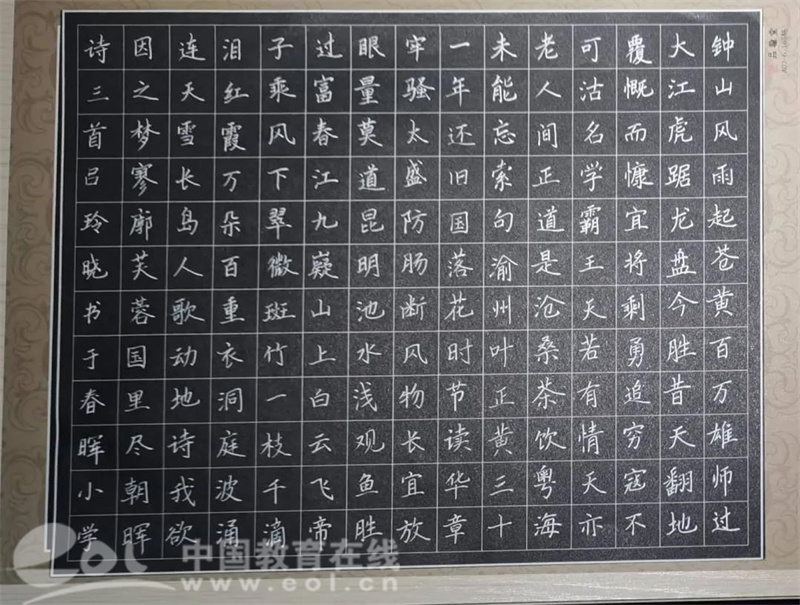 钟山风雨起苍黄百万雄师过
大江虎踞龙盘今胜昔天翻地
覆慨而慷宜将剩勇追穷寇不
可沽名学霸王天若有情天亦
老人间正道是沧桑茶饮粤海
未能忘索句渝州叶正黄三十
一年还旧国落花时节读华章
牢骚太盛防肠断风物长宜放
眼量莫道昆明池水浅观鱼胜
过富春江九嶷山上白云飞帝
子乘风下翠微斑竹一枝千滴
泪红霞万朵百重衣洞庭波涌
连天雪长岛人歌动地诗我欲
因之梦寥廓芙蓉国里尽朝晖
诗三首吕玲晓书于春晖小学
eol 中国教育在线
www.eol.cn